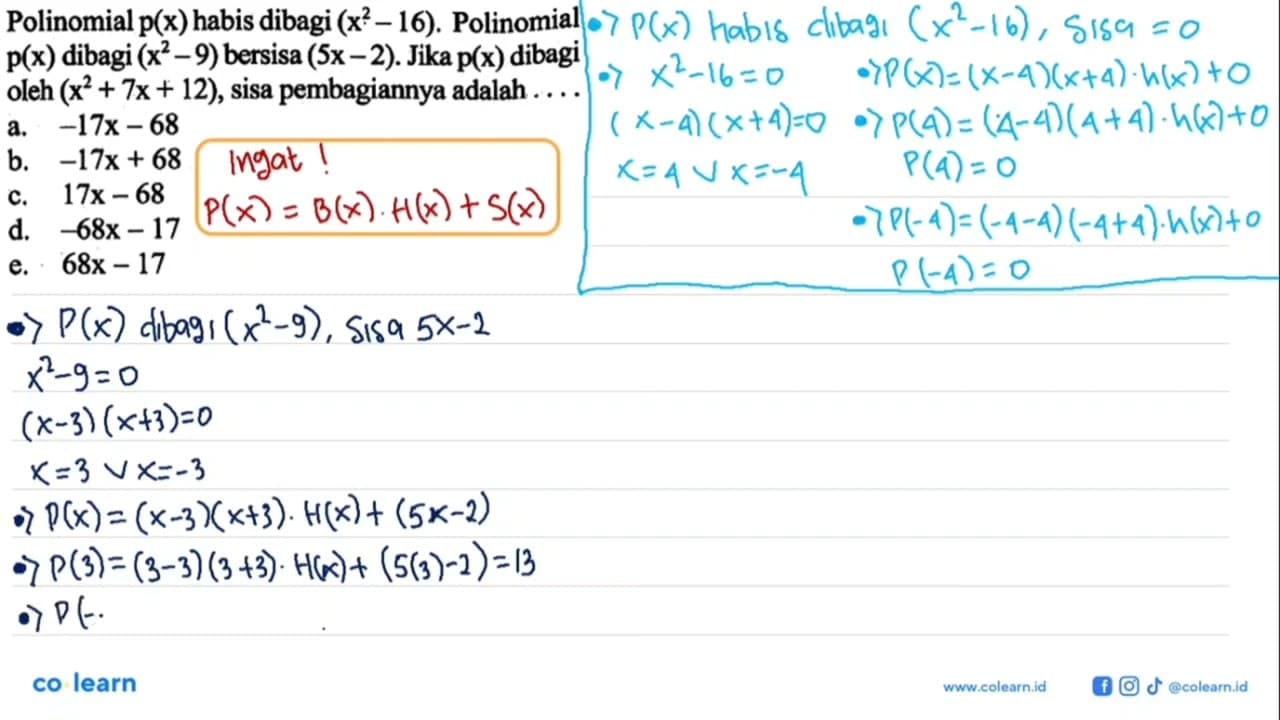 Polinomial p(x) habis dibagi (x² – 16). Polinomial
p(x) dibagi (x² – 9) bersisa (5x – 2). Jika p(x) dibagi
oleh (x² + 7x + 12), sisa pembagiannya adalah . . . .
a. –17x – 68
b. –17x + 68
c. 17x – 68
d. –68x – 17
e. 68x – 17
Ingat !
P(x) = B(x) . H(x) + S(x)
•> P(x) habis dibagi (x² – 16), sisa = 0
•> x² – 16 = 0
(x – 4)(x + 4) = 0
x = 4 ∨ x = –4
•> P(x) = (x – 4)(x + 4) . h(x) + 0
•> P(4) = (4 – 4)(4 + 4) . h(x) + 0
P(4) = 0
•> P(–4) = (–4 – 4)(–4 + 4) . h(x) + 0
P(–4) = 0
•> P(x) dibagi (x² – 9), sisa 5x – 2
x² – 9 = 0
(x – 3)(x + 3) = 0
x = 3 ∨ x = –3
•> P(x) = (x – 3)(x + 3) . H(x) + (5x – 2)
•> P(3) = (3 – 3)(3 + 3) . H(x) + (5(3) – 2) = 13
•> P(–.
co learn
www.colearn.id
@colearn.id